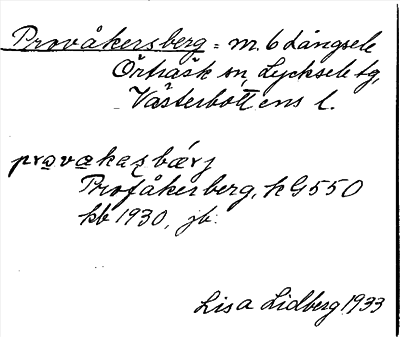 Provåkersberg = m. 6 Långsele
Örträsk sn, Lycksele tg,
Västerbottens l.
provakaʂbærj
Profåkersberg, h G 550
kb 1930, jb.
Lisa Lidberg 1933